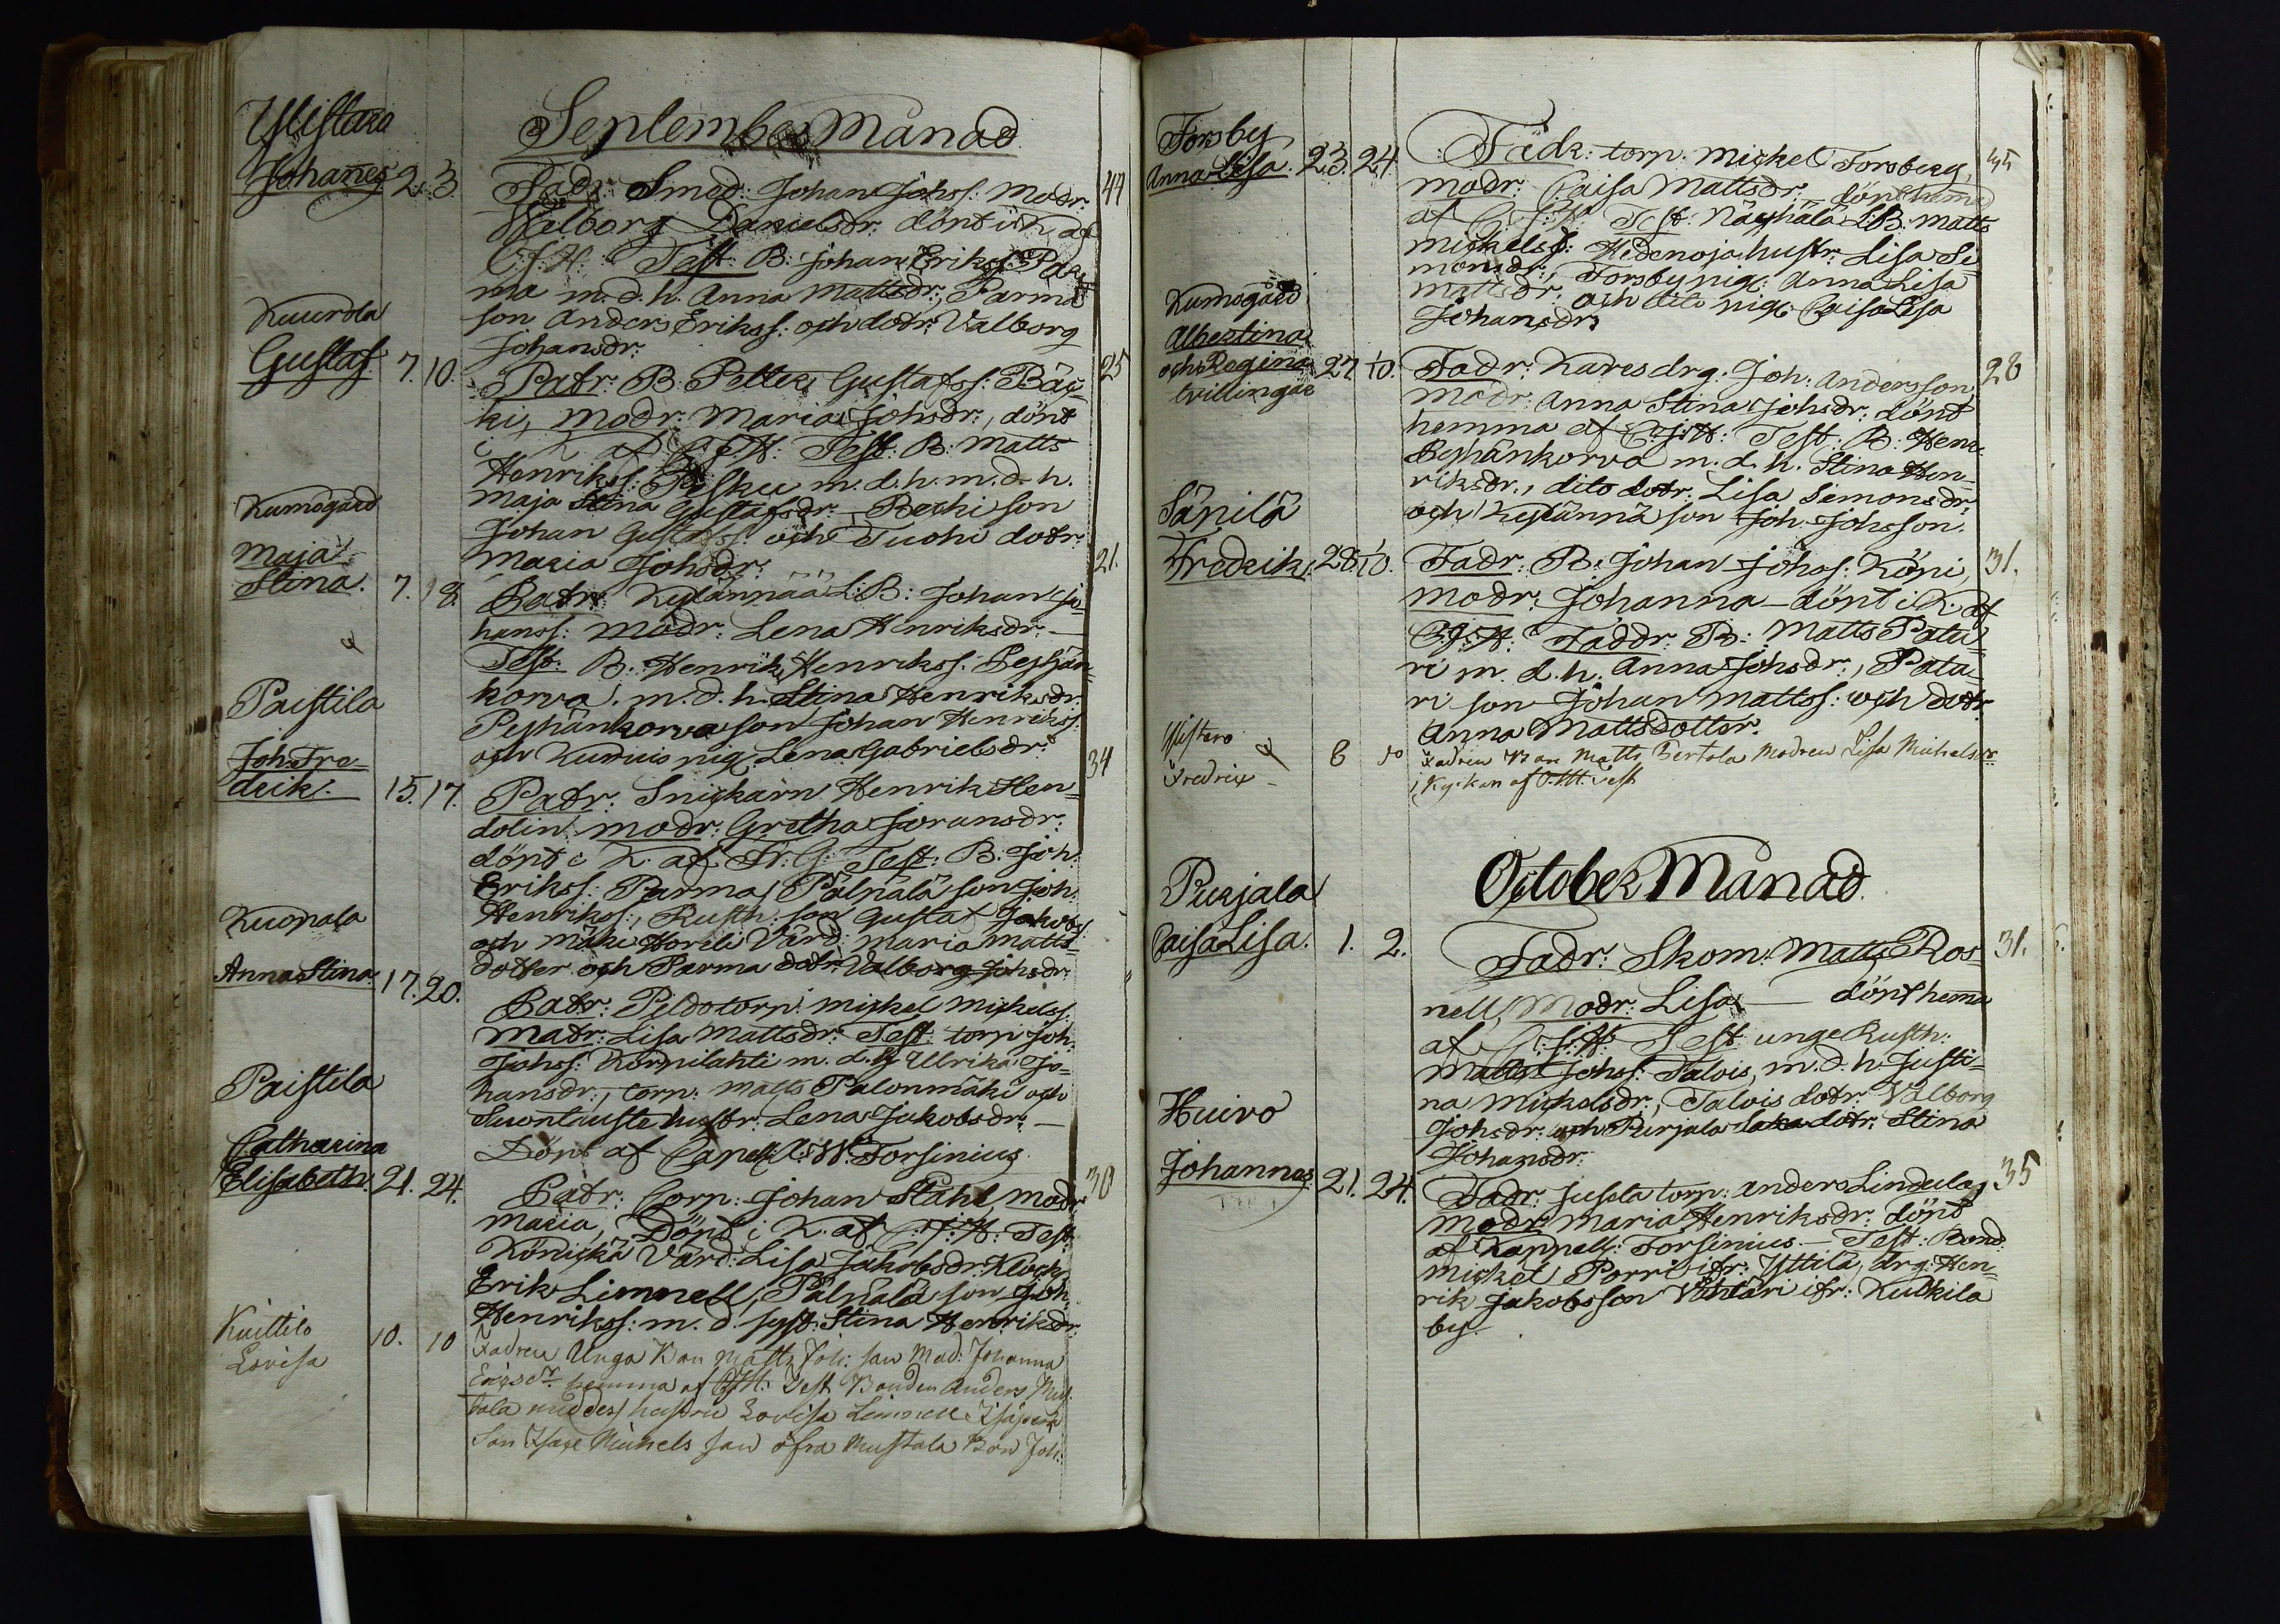 Ylistaro
September Månad
Johanes 2. 3. Fadr: Smed: Johan Johss: Modr: 44
Walborg Danielsdr: döpt i K af
C. J. H. Test: B: Johan Erikss: Par-
ma m. d. h. Anna Mattsdr:, Parma
Kuurola
son Anders Erikss: och dotr: Valborg
Johansdr:
Gustaf. 7. 10. Patr: B: Petter Gustafss: 25
ki, modr: Maria Johsdr:, döpt
i K af C J H: Test: B: Matts
Henrikss: m. d. h. m. d. h.
Kumogård
Maja Stina Gustafsdr: Pechi son
Johan Gustafss: och Tuohi dotr:
Maria Johsdr:
Maja
Stina. 7. 18. Patr: Kylännää L: B: Johan Jo- 21.
hanss: modr: Lena Henriksdr: —
Test: B: Henrik Henrikss: Peyhän-
korva, m. d. h. Stina Henriksdr:
Paistila
Peyhänkorva son Johan Henrikss:
och pig: Lena Gabrielsdr:
Joh: Fre-
derik. 15. 17. Patr: Snickarn Henrik Hen- 34
dolin modr: Gretha Göransdr:
döpt i K. af Fr: G: Test: B: Joh:
Erikss: Parma, Pälpälä son Joh:
Kuopala
Henrikss:, Rusth: son Gustaf Jakobs:
och Mäki Värd: Maria Matts-
dotter och Parma dotr: Valborg Johsdr:
Anna Stina. 17. 20. Patr: torp: Mickel Mickelss:
Matr: Lisa Mattsdr: Test: torp: Joh:
Johss: Korpilahti m. d. h. Ulrika Jo-
Paistila
hansdr:, torp: Matts Palonmäki och
hustr: Lena Jakobsdr: —
Döpt af Capell: A: W: Forsinius
Catharina
Elisabeth. 21. 24. Patr: Corp: Johan Ståhl, modr: 30
Maria, Döpt i K. af C. J. H: Test:
Värd: Lisa Jakobsdr: Klock:
Erik Limnell, Pälpälä son Joh:
Henrikss: m. d. syst: Stina Henriksdr:
Kuittilo
Lovisa 10. 10 Fadren Unga Bon Matts Joh: son Mod: Johanna
Ericsdr hemma af CJH: Test Bonden Anders Mus-
tala med dess hustru Lovisa Limnell
Son Isac Michels son öfra Mustala Bon Joh:
Forsby
Anna Lisa. 23. 24. Fadr: torp: Mickel Forsberg, 45
modr: Caisa Mattsdr: döpt hemma
af C: J: H: Test: Näyhälä L: B: Matts
Mickelss: Hedenoja hustr: Lisa Si-
monsdr:, Forsby pig: Anna Lisa
Mattsdr: och dito pig: Caisa Lisa
Johansdr:
Kumogård
Albertina
och Regina
tvillingar 27. 10. Fadr: Kares drg: Joh: Andersson, 28
modr: Anna Stina Johsdr: döpt
hemma af C: J: H: Test: B: Henr:
Peyhänkorva m. d. h. Stina Hen-
riksdr:, dito dotr: Lisa Simonsdr:
och Kylännä son Joh: Johsson.
Sänilä
Fredrik. 28. 10. Fadr: B: Johan Johss: Köpi, 31.
modr: Johanna — döpt i K. af
C: J: H: Faddr: B: Matts Patu-
ri m. d. h. Anna Johsdr:, Patu-
ri son Johan Mattss: och dotr:
Anna Mattsdotter.
Ylistaro
Fredric — 8 10 Fadren Bon Matts Bertola Modren Lisa Michelsdr
i Kyrkan af Test
October Månad.
Purjala
Caisa Lisa. 1. 2. Fadr: Skom: Matts Ros- 31.
nell, Modr: Lisa — döpt hemma
af C: J: H: Test: unge Rusth:
Matts Johss: Talvis, m. d. h. Justi-
na Mickelsdr:, Talvis dotr: Valborg
Johsdr: och Purjala dotr: Stina
Johansdr:
Huivo
Johannes. 21. 24. Fadr: Jusela torp: Anders Lindula, 35
modr: Maria Henriksdr: döpt
af Kappell: Forsinius — Test: Bond:
Mickel Porri ifr: Yttilä, drg: Hen-
rik Jakobsson ifr: Kulkila
by.